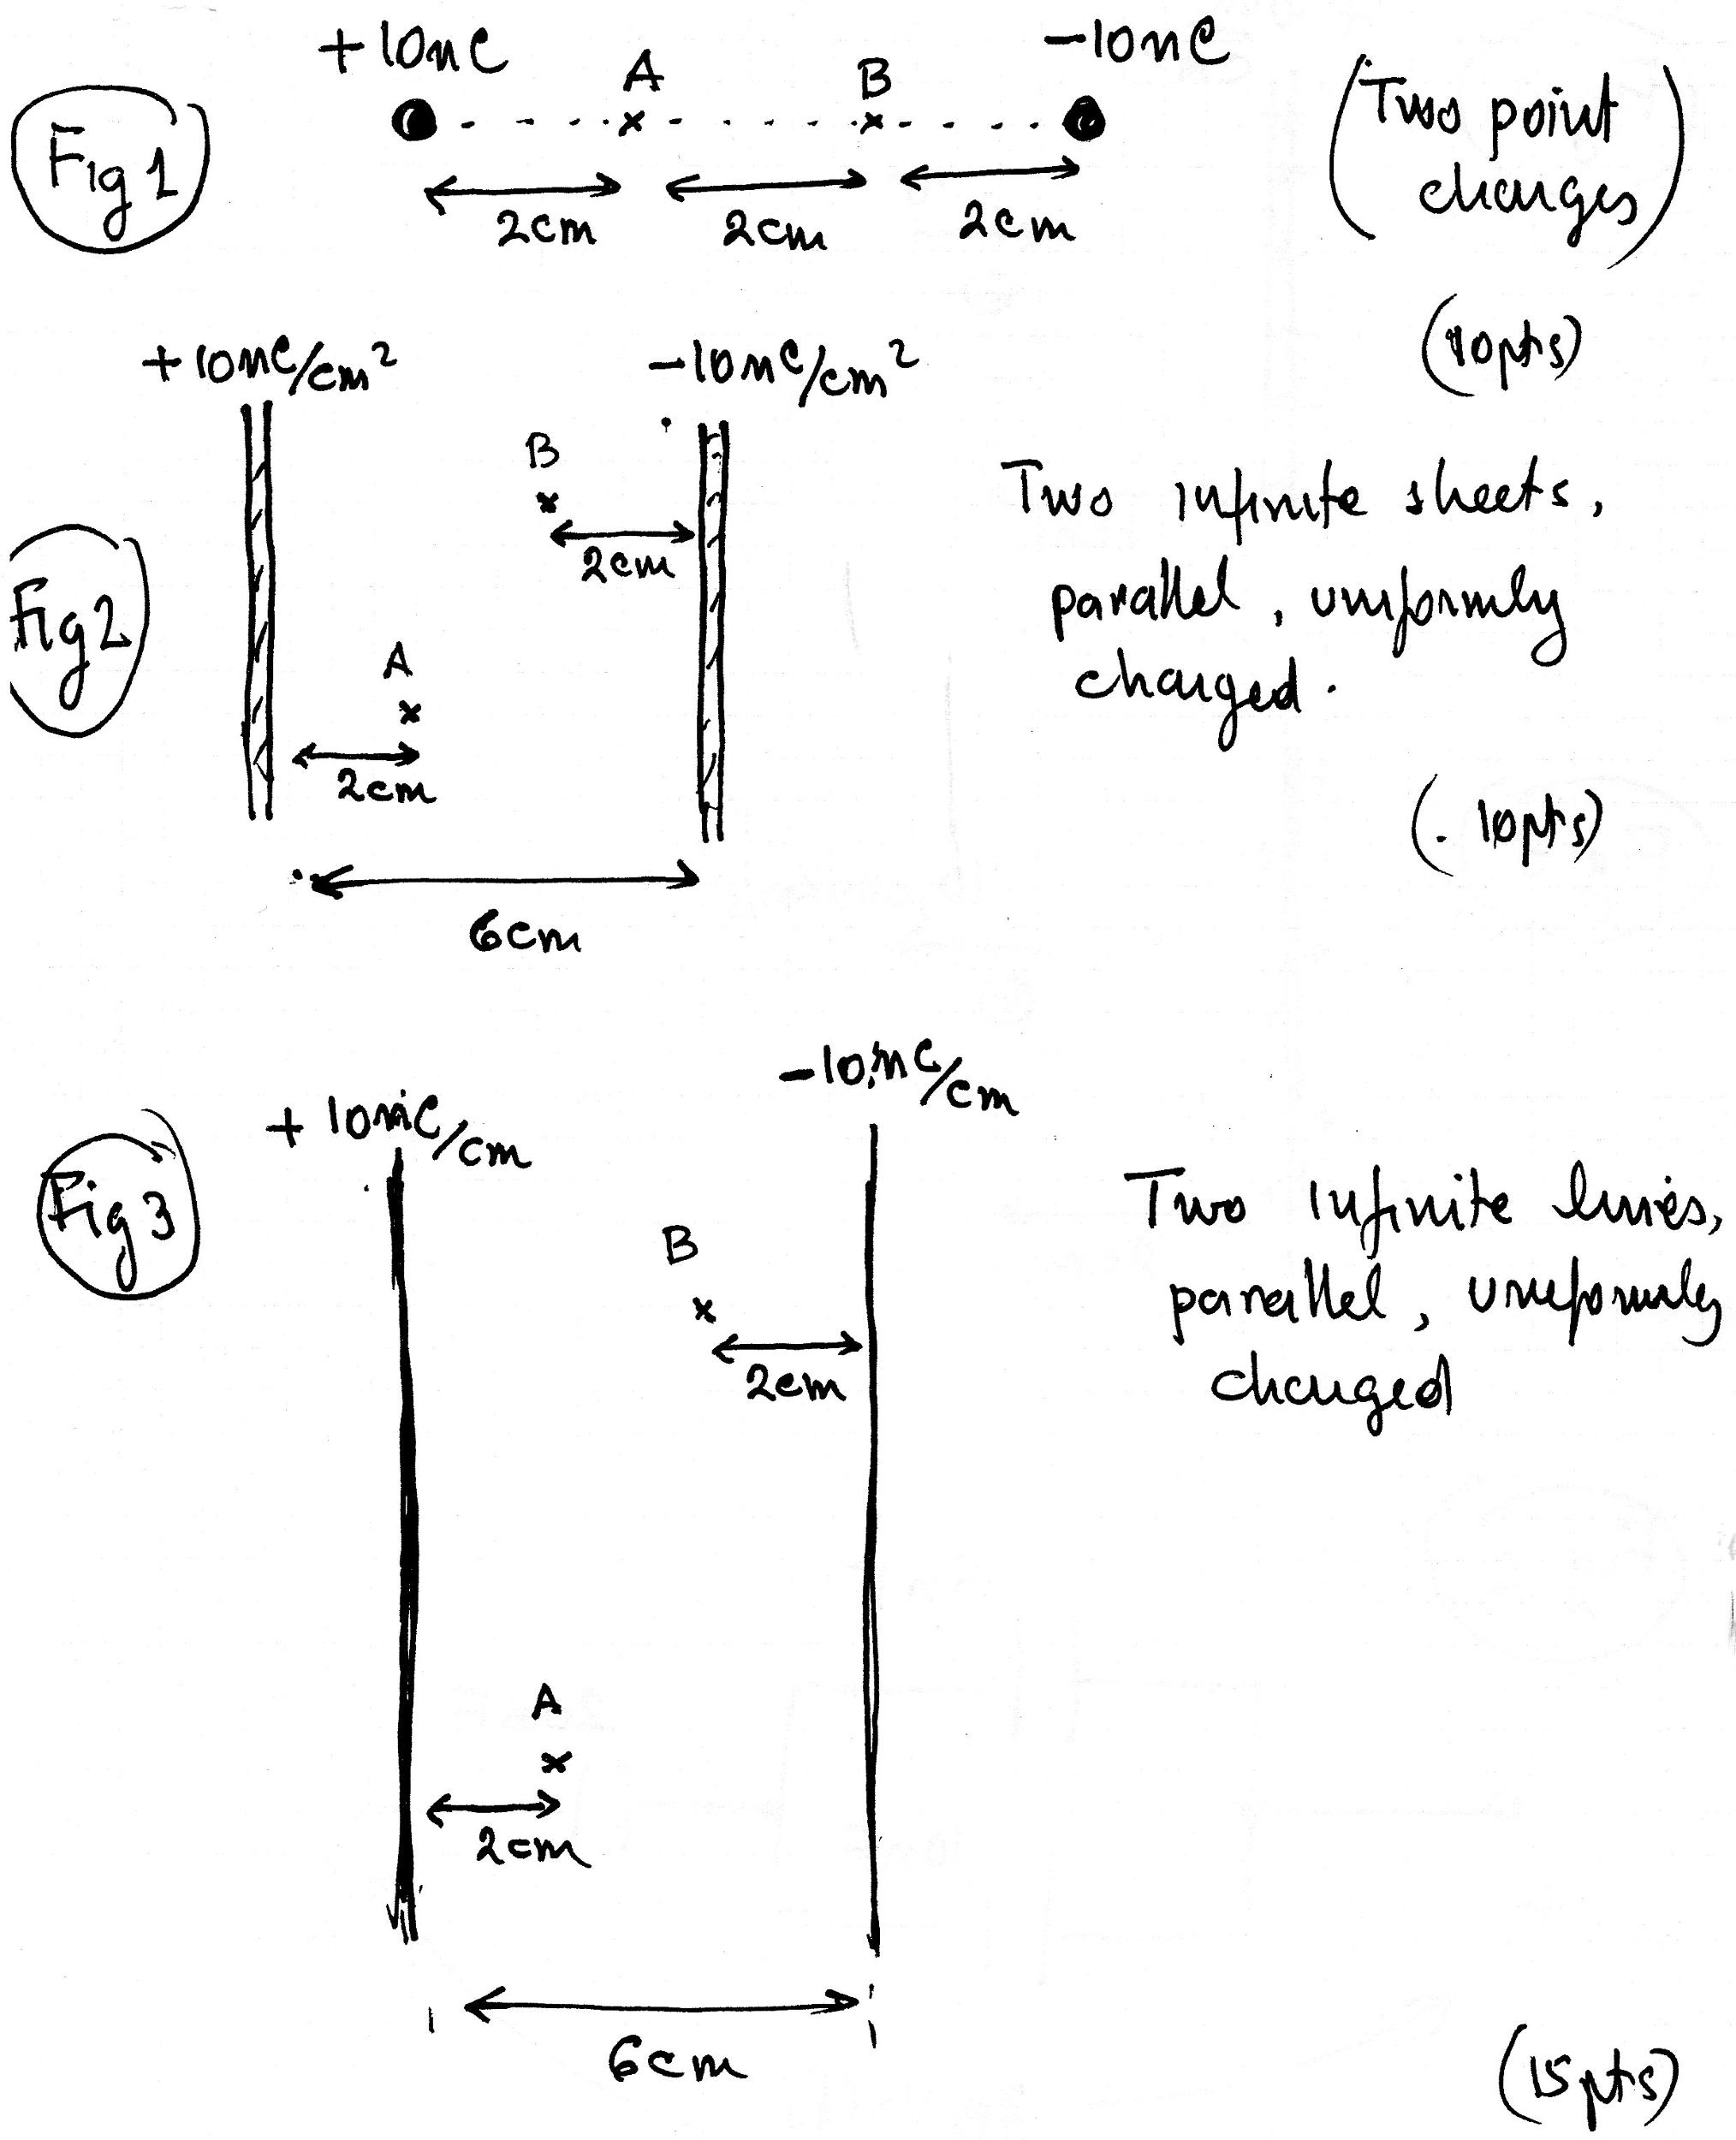 +10nC A B -10nC
Fig 1
2cm 2cm 2cm
(Two point
charges)
(10pts)
+10nC/cm² -10nC/cm²
B
2cm
Fig 2
A
2cm
6cm
Two infinite sheets,
parallel, uniformly
charged.
(10pts)
+10nC/cm -10nC/cm
Fig 3
B
2cm
A
2cm
6cm
Two infinite lines,
parallel, uniformly
charged
(15pts)